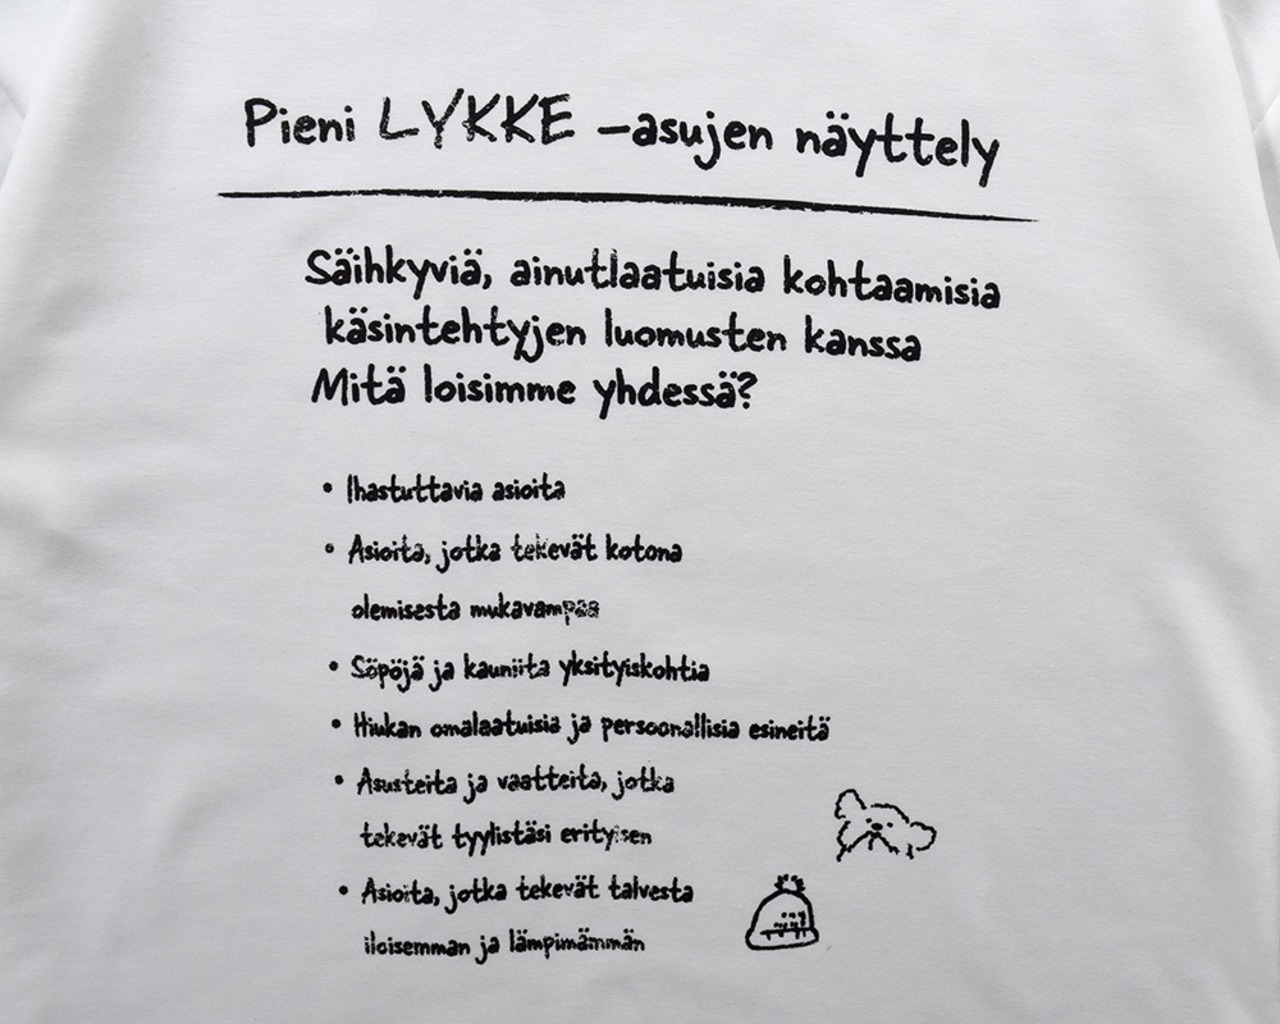 Pieni LYKKE -asujen näyttely
Säihkyviä, ainutlaatuisia kohtaamisia
käsintehtyjen luomusten kanssa
Mitä loisimme yhdessä?
• Ihastuttavia asioita
• Asioita, jotka tekevät kotona
olemisesta mukavampaa
• Söpöjä ja kauniita yksityiskohtia
• Hiukan omalaatuisia ja persoonallisia esineitä
• Asusteita ja vaatteita, jotka
tekevät tyylistäsi erityisen
• Asioita, jotka tekevät talvesta
iloisemman ja lämpimämmän